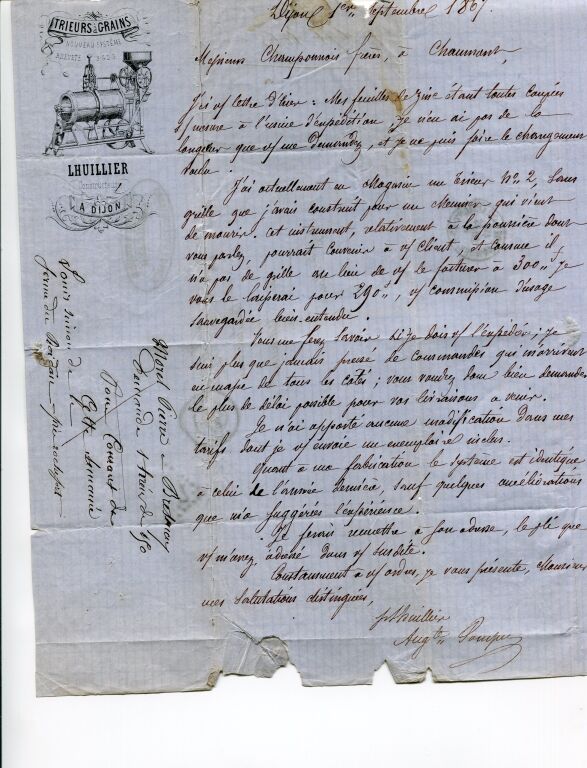 TRIEURS À GRAINS
NOUVEAU SYSTÈME
BREVETÉ S.G.D.G.
LHUILLIER
Constructeur
A DIJON
Dijon 1er Septembre 186
Messieurs Champonnois frères, à Chaumont,
J'ai v/ lettre d'hier : Mes feuilles de zinc étant toutes coupées
s/ mesure à l'usine d'expédition, je n'en ai pas de la
longueur que v/ me demandez, et je ne puis faire le changement
voulu.
J'ai actuellement en Magasin un Trieur No 2, sans
grille que j'avais construit pour un Meunier qui vient
de mourir. Cet instrument, relativement à la poussière dont
vous parlez, pourrait convenir à v/ Client, et comme il
n'a pas de grille au lieu de v/ le facturer à 300 f je
vous le laisserai pour 290 f, v/ commission d'usage
sauvegardée bien entendu.
Vous me ferez savoir si je dois v/ l'expédier ; je
suis plus que jamais pressé de commandes qui m'arrivent
en masse de tous les côtés ; vous voudrez donc bien demander
le plus de délai possible pour vos livraisons à venir.
Je n'ai apporté aucune modification dans mes
tarifs dont je v/ envoie un exemplaire inclus.
Quant à ma fabrication le système est identique
à celui de l'année dernière, sauf quelques améliorations
que m'a suggérées l'expérience.
Je ferais remettre à son adresse, le pli que
v/ m'avez adressé dans v/ susdite.
Constamment à v/ ordres, je vous présente, Messieurs
mes salutations distinguées,
Lhuillier
Morel Pierre à
demande 1 Trieur de 190
Pour Courant de
Cette semaine